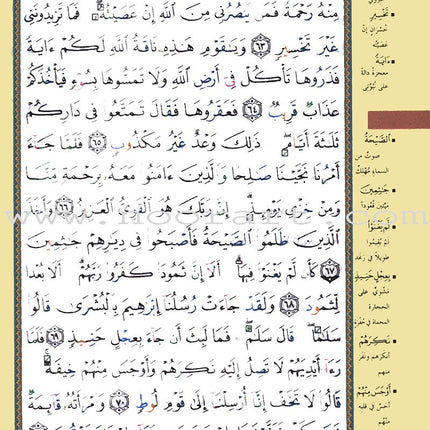 مِنْهُ رَحْمَةً فَمَن يَنصُرُنِي مِنَ اللَّهِ إِنْ عَصَيْتُهُۥ فَمَا تَزِيدُونَنِي
غَيْرَ تَخْسِيرٍ ٦٣ وَيَٰقَوْمِ هَٰذِهِۦ نَاقَةُ اللَّهِ لَكُمْ ءَايَةً
فَذَرُوهَا تَأْكُلْ فِي أَرْضِ اللَّهِ وَلَا تَمَسُّوهَا بِسُوٓءٍ فَيَأْخُذَكُمْ
عَذَابٌ قَرِيبٌ ٦٤ فَعَقَرُوهَا فَقَالَ تَمَتَّعُوا فِي دَارِكُمْ
ثَلَٰثَةَ أَيَّامٍ ذَٰلِكَ وَعْدٌ غَيْرُ مَكْذُوبٍ ٦٥ فَلَمَّا جَآءَ
أَمْرُنَا نَجَّيْنَا صَٰلِحًا وَالَّذِينَ ءَامَنُوا مَعَهُۥ بِرَحْمَةٍ مِّنَّا
وَمِنْ خِزْيِ يَوْمِئِذٍ إِنَّ رَبَّكَ هُوَ الْقَوِيُّ الْعَزِيزُ ٦٦ وَأَخَذَ
الَّذِينَ ظَلَمُوا الصَّيْحَةُ فَأَصْبَحُوا فِي دِيَٰرِهِمْ جَٰثِمِينَ
٦٧ كَأَن لَّمْ يَغْنَوْا فِيهَآ أَلَآ إِنَّ ثَمُودَا كَفَرُوا رَبَّهُمْ أَلَا بُعْدًا
لِّثَمُودَ ٦٨ وَلَقَدْ جَآءَتْ رُسُلُنَآ إِبْرَٰهِيمَ بِالْبُشْرَىٰ قَالُوا
سَلَٰمًا قَالَ سَلَٰمٌ فَمَا لَبِثَ أَن جَآءَ بِعِجْلٍ حَنِيذٍ ٦٩ فَلَمَّا
رَءَآ أَيْدِيَهُمْ لَا تَصِلُ إِلَيْهِ نَكِرَهُمْ وَأَوْجَسَ مِنْهُمْ خِيفَةً
قَالُوا لَا تَخَفْ إِنَّآ أُرْسِلْنَآ إِلَىٰ قَوْمِ لُوطٍ ٧٠ وَامْرَأَتُهُۥ قَآئِمَةٌ
تَخْسِيرٍ
خُسْرَانٍ إنْ
عَصَيْتُهُ
ءَايَةً
مُعْجِزَةً دَالَّةً
عَلَى نُبُوَّتِي
الصَّيْحَةُ
صَوْتٌ مِنَ
السَّمَاءِ مُهْلِكٌ
جَٰثِمِينَ
مَيِّتِينَ قُعُوداً
لَمْ يَغْنَوْا
لَمْ يُقِيمُوا
طَوِيلاً فِي رَغَدٍ
بِعِجْلٍ حَنِيذٍ
مَشْوِيٍّ عَلَى
الحِجَارَةِ
المُحْمَاةِ فِي حُفْرَةٍ
نَكِرَهُمْ
أَنْكَرَهُمْ وَنَفَرَ
مِنْهُمْ
أَوْجَسَ مِنْهُمْ
أَحَسَّ فِي قَلْبِهِ
مِنْهُمْ